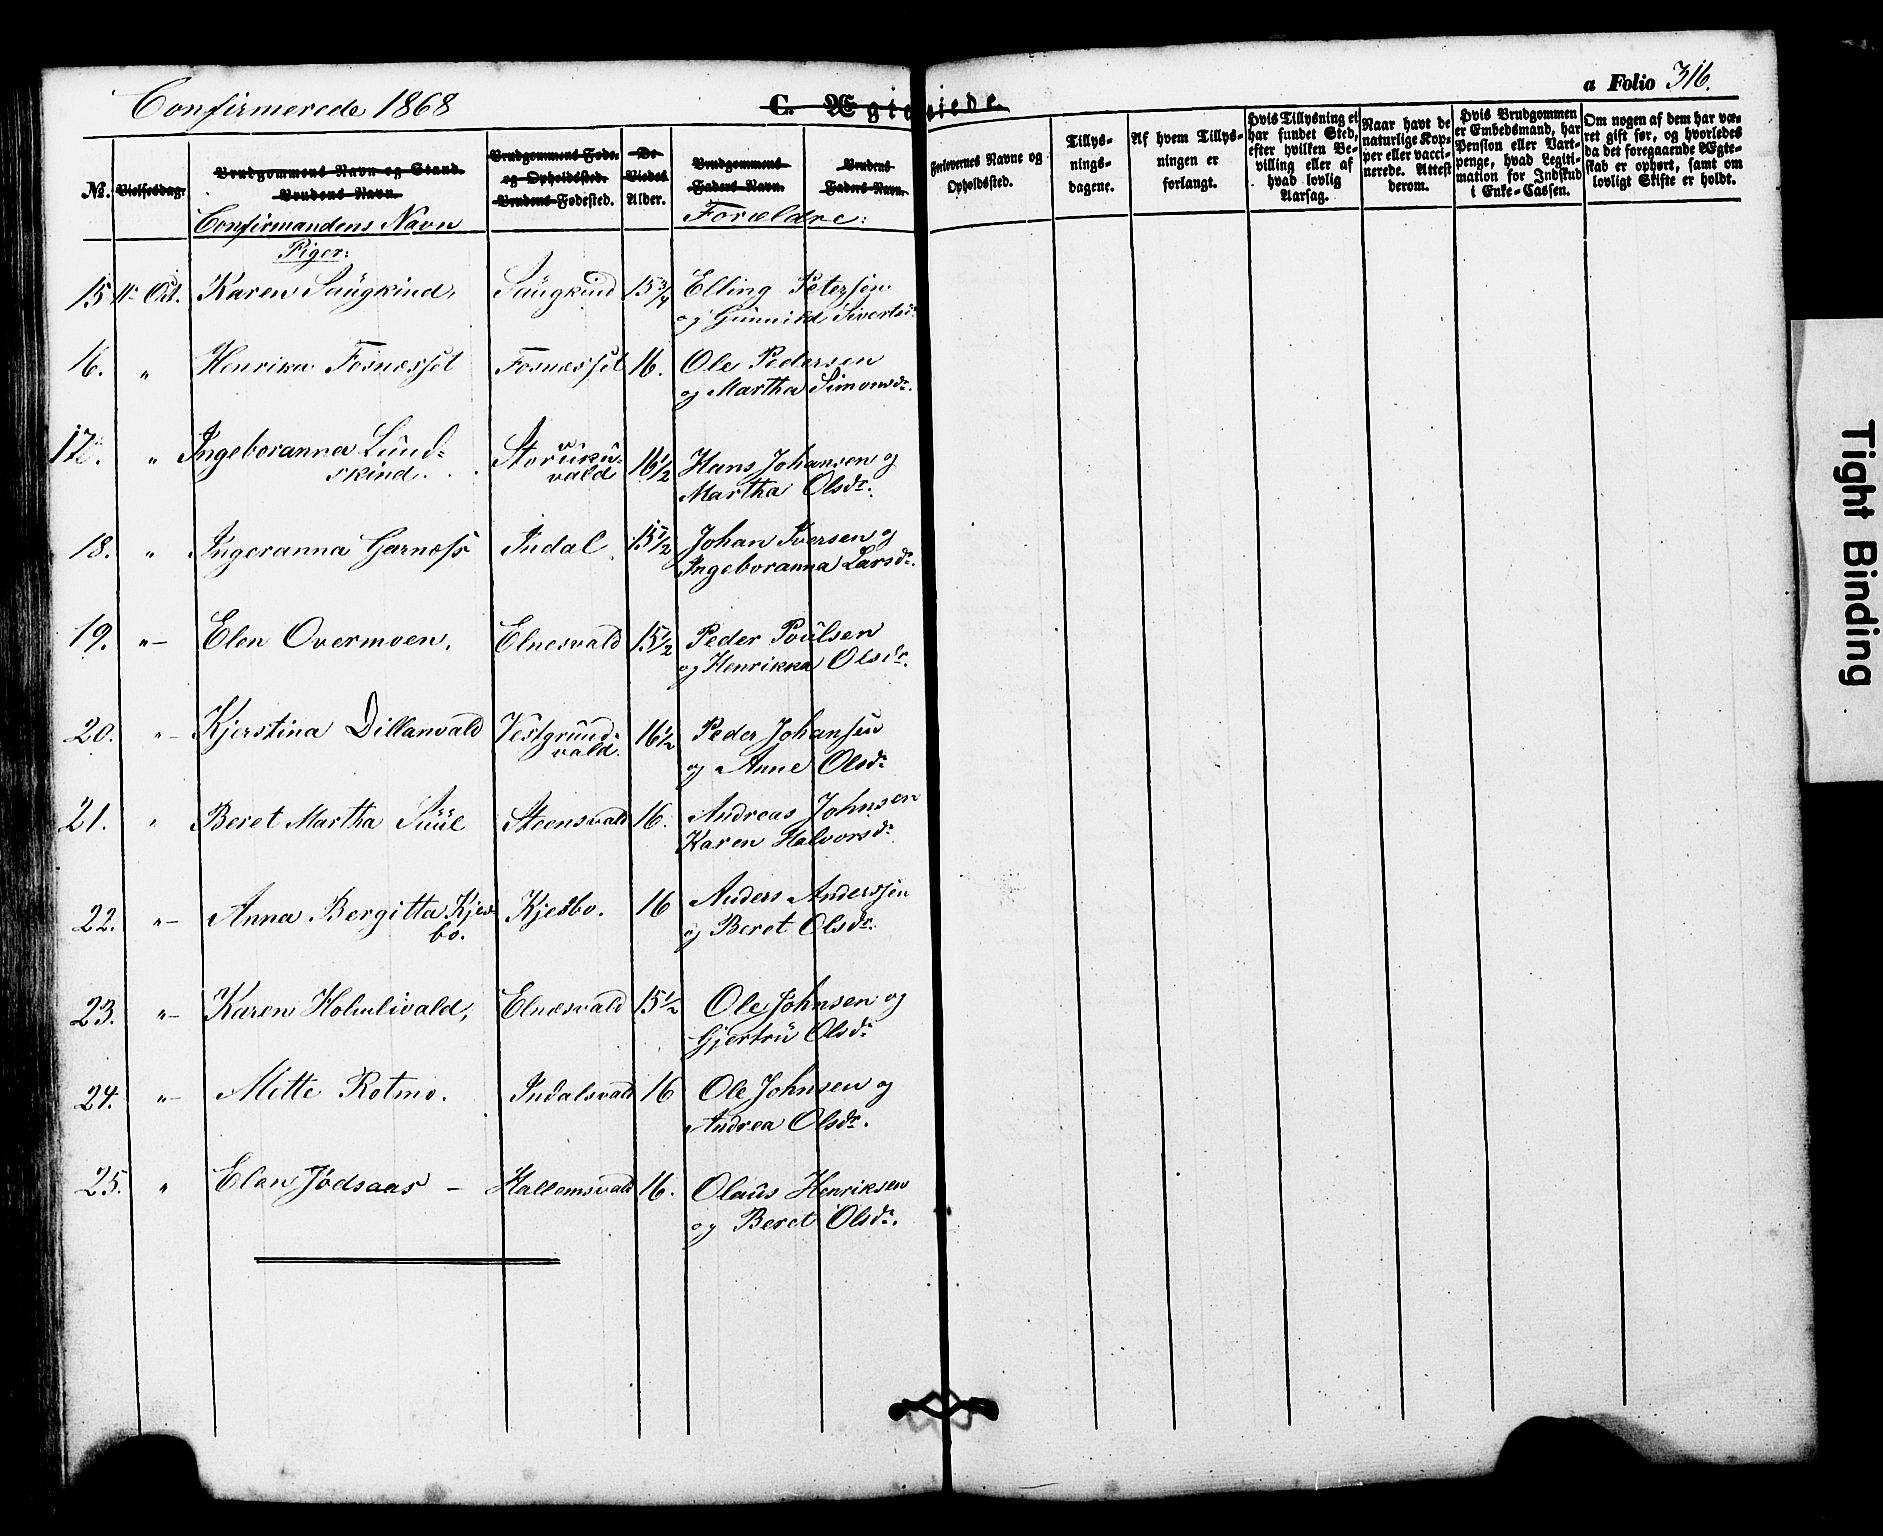 Confirmerede 1868
C. Ægteviede.
a Folio 316.
No. Vielsesdag. Brudgommens Navn og Stand. Brudens Navn. Brudgommens Føde- og Opholdssted. Brudens Fødested. De Viedes Alder. Brudgommens Faders Navn. Brudens Faders Navn.
Confirmandens Navn
Forældre:
Forlovernes Navne og Opholdssted.
Tillysningsdagene.
Af hvem Tillysningen er forlangt.
Hvis Tillysning ei har fundet Sted, efter hvilken Bevilling eller af hvad lovlig Aarsag.
Naar havt de naturlige Kopper eller vaccinerede. Attest derom.
Hvis Brudgommen er Embedsmand, har Pension eller Vartpenge, hvad Legitimation for Indskud i Enke-Cassen.
Om nogen af dem har været gift før, og hvorledes da det foregaaende Ægteskab er ophørt, samt om lovligt Skifte er holdt.
Piger:
15 11te Oct. Karen Saugkind, Saugkind 15 3/4 Elling Petersen
og Gunnild Sivertsdr
16. " Henrika Fosnæsset Fosnæsset 16. Ole Pedersen
og Martha Simonsdr.
17. " Ingeboranna Lund-
skind. vald 16 1/2 Hans Johansen og
Martha Olsdr.
18. " Ingeranna Garnæss Indal 15 1/2 Johan Iversen og
Ingeboranna Larsdr.
19. " Elen Overmoen. Elnesvald 15 1/2 Peder Poulsen
og Henrikka Olsdr.
20. " Kjerstina Dillanvald Vestgrund-
vald. 16 1/2 Peder Johansen
og Anne Olsdr
21. " Beret Martha Suul Steensvald 16. Andreas Johnsen
Karen Halvorsdr
22. " Anna Bergitta Kjes-
bo. Kjesbo. 16 Anders Anderssen
og Beret Olsdr.
23. " Karen Holmlivald, Elnæsvald 15 1/2 Ole Johnsen og
Gjertru Olsdr
24. " Mette Rotmo. Indalsvald 16 Ole Johnsen og
Andrea Olsdr.
25. " Elen Jødsaas Hallemsvald 16. Olaus Henriksen
og Beret Olsdr.
Tight Binding